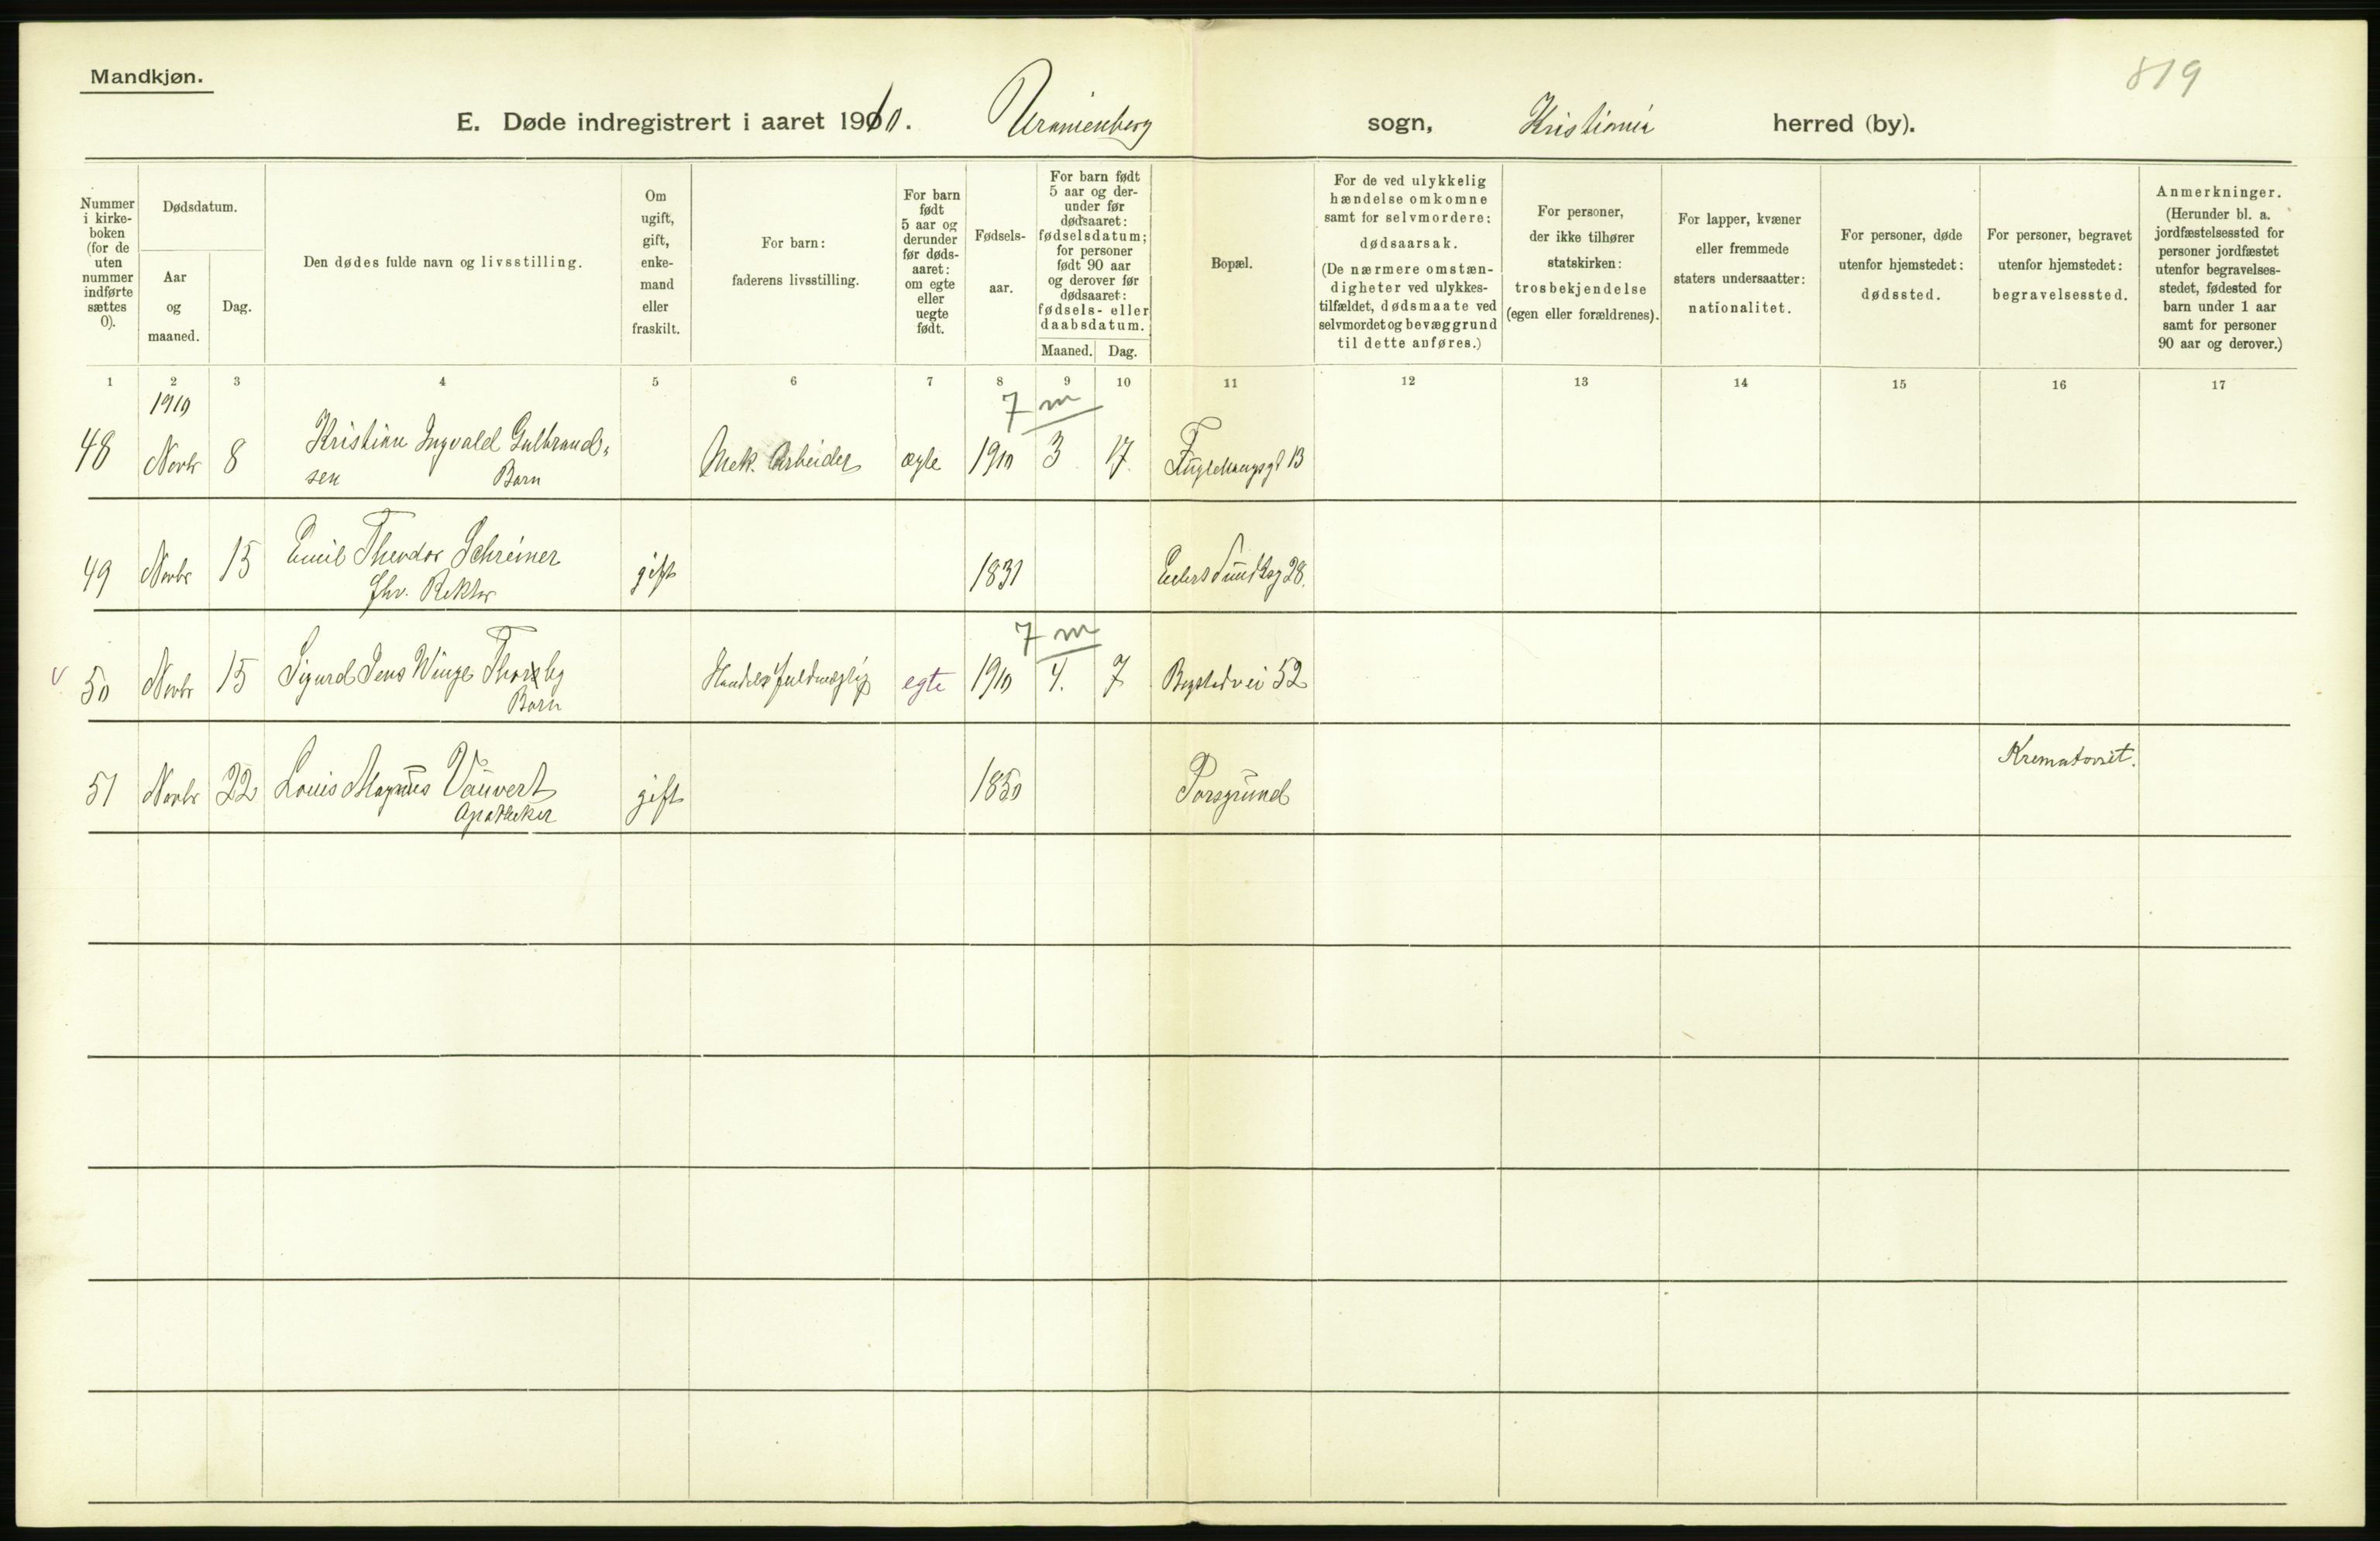 Mandkjøn.
819
E. Døde indregistrert i aaret 1910. Uranienborg sogn, Kristiania herred (by).
Nummer i kirke- boken (for de uten nummer indførte sættes 0).
Dødsdatum.
Aar og maaned.
Dag.
Den dødes fulde navn og livsstilling.
Om ugift, gift, enke- mand eller fraskilt.
For barn: faderens livsstilling.
For barn født 5 aar og derunder før døds- aaret: om egte eller uegte født.
Fødsels- aar.
For barn født 5 aar og der- under før dødsaaret: fødselsdatum; for personer født 90 aar og derover før dødsaaret: fødsels- eller daabsdatum.
Maaned. Dag.
Bopæl.
For de ved ulykkelig hændelse omkomne samt for selvmordere: dødsaarsak. (De nærmere omstæn- digheter ved ulykkes- tilfældet, dødsmaate ved selvmordet og bevæggrund til dette anføres.)
For personer, der ikke tilhører statskirken: trosbekjendelse (egen eller forældrenes).
For lapper, kvæner eller fremmede staters undersaatter: nationalitet.
For personer, døde utenfor hjemstedet: dødssted.
For personer, begravet utenfor hjemstedet: begravelsessted.
Anmerkninger. (Herunder bl. a. jordfæstelsessted for personer jordfæstet utenfor begravelses- stedet, fødested for barn under 1 aar samt for personer 90 aar og derover.)
1 2 3 4 5 6 7 8 9 10 11 12 13 14 15 16 17
1910
7 m
48 Novbr 8 Kristian Ingvald Gulbrand-
sen Barn Mek. Arbeider ægte 1910 3 17. Fuglehaugsgt 13
49 Novbr 15 Emil Theodor Schreiner
fhv. Rektor gift 1831 Eilert Sundtsg 28.
7 m
v 50 Novbr 15 Sigurd Jens Winge Thorsby
Barn Handelsfuldmægtig egte 1910 4. 7 Bogstadvei 52
51 Novbr 22 Louis Magnus Vauvert
Apotheker gift 1850 Porsgrund Krematoriet.